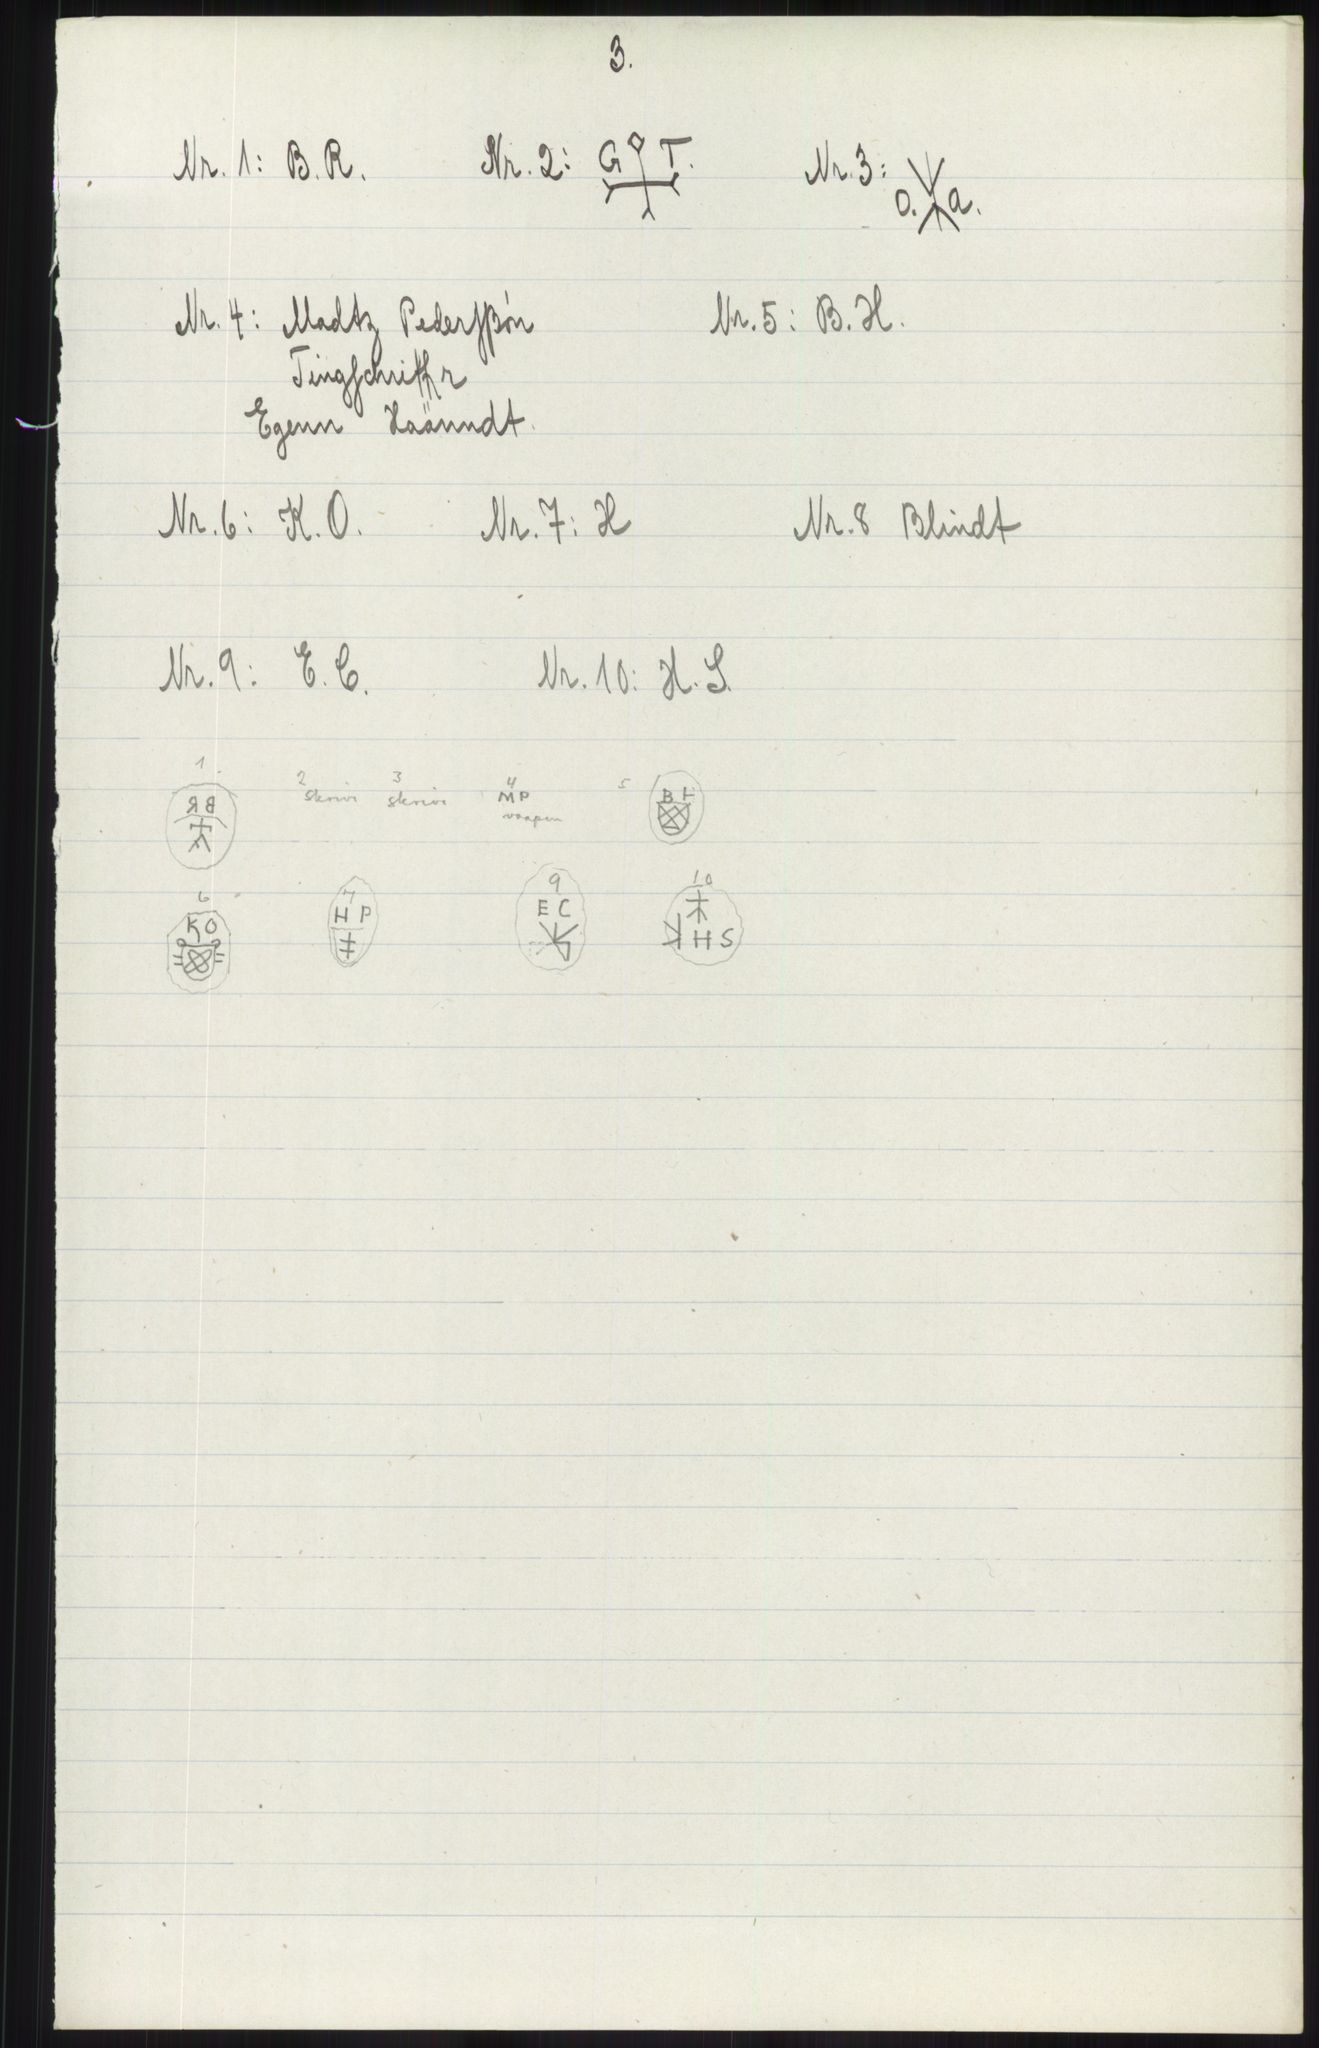 3.
Nr. 1: B. R. Nr. 2: G T. Nr. 3: O. A.
Nr. 4: Madtz Pederßøn Nr. 5: B. H.
Tingschriffr
Egenn Haånndt.
Nr. 6: K. O. Nr. 7: H Nr. 8 Blindt
Nr. 9: E. C. Nr. 10: H. S.
1 2 3 4 5
RB skrivi skrivi MP BH
vaapen
6 7 9 10
KO HP EC HS